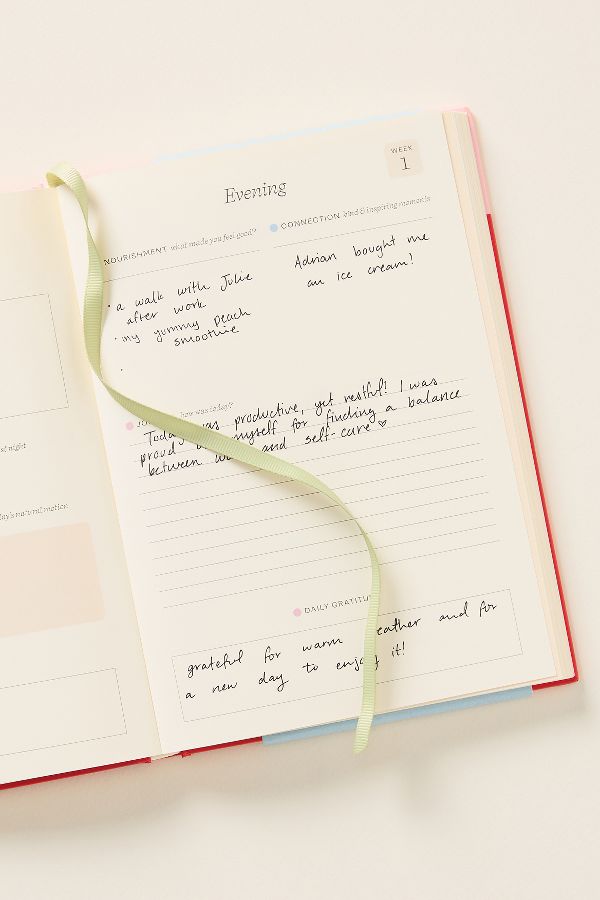 WEEK
1
Evening
NOURISHMENT what made you feel good?
CONNECTION kind & inspiring moments
· a walk with Julie
after work
· my yummy peach
smoothie
·
Adrian bought me
an ice cream!
how was today?
Today was productive, yet restful! I was
proud myself for finding a balance
between and self-care ♡
st night
day's natural motion
DAILY
grateful for warm and for
a new day to enjoy it!